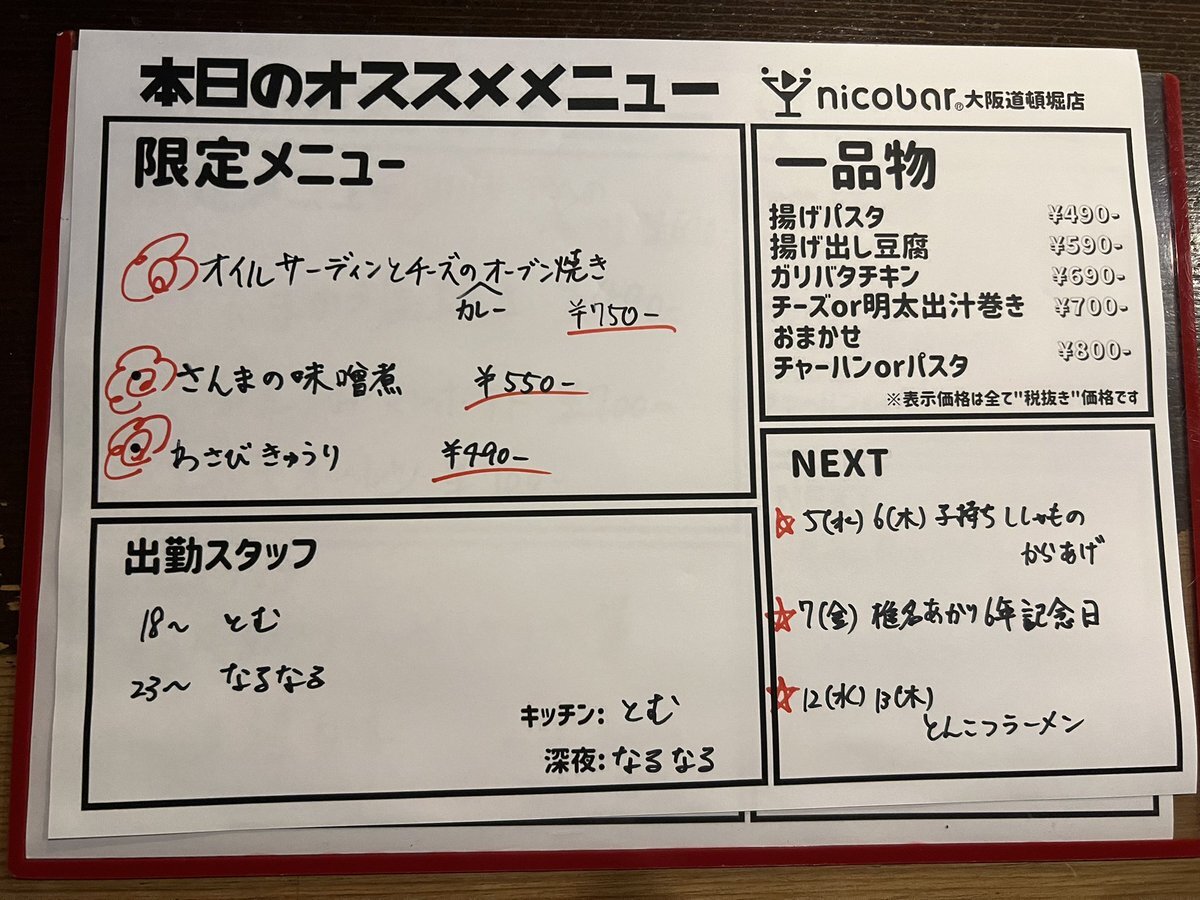 本日のオススメメニュー
nicobar® 大阪道頓堀店
限定メニュー
オイルサーディンとチーズのオーブン焼き
カレー
¥750-
さんまの味噌煮 ¥550-
わさびきゅうり ¥490-
一品物
揚げパスタ ¥490-
揚げ出し豆腐 ¥590-
ガリバタチキン ¥690-
チーズor明太出汁巻き ¥700-
おまかせ
チャーハンorパスタ ¥800-
※表示価格は全て"税抜き"価格です
出勤スタッフ
18～ とむ
23～ なるなる
キッチン: とむ
深夜: なるなる
NEXT
☆ 5(水) 6(木) 子持ちししゃもの
からあげ
☆ 7(金) 椎名あかり6年記念日
☆ 12(水) 13(木)
とんこつラーメン